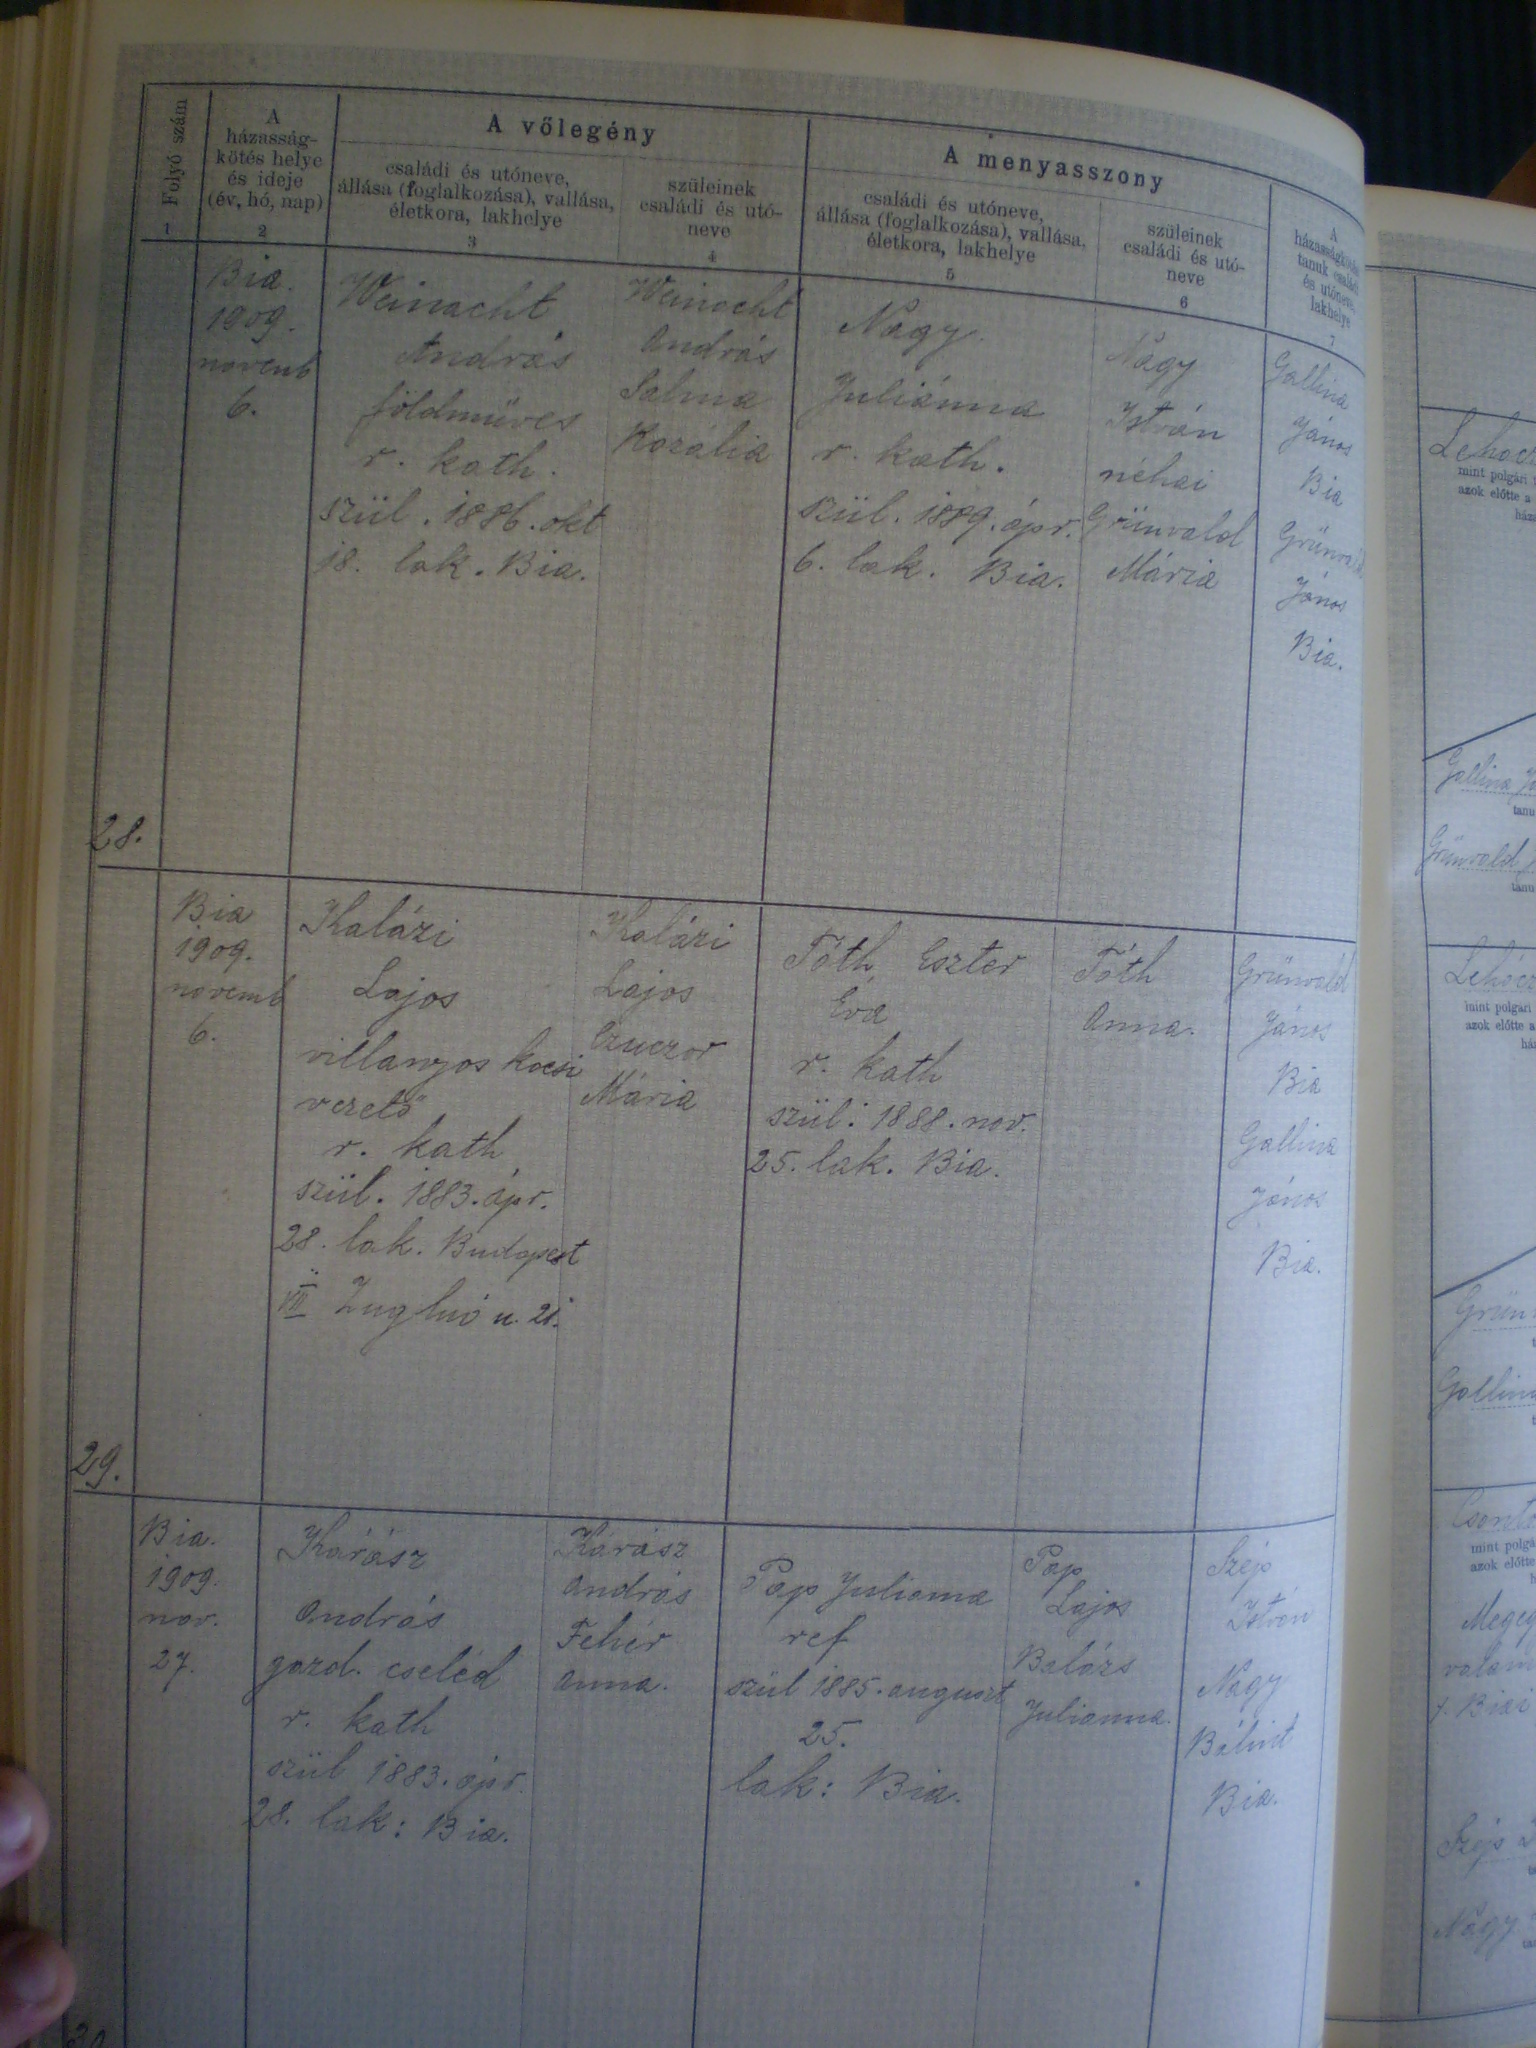 Folyó szám
1
A
házasság-
kötés helye
és ideje
(év, hó, nap)
2
A vőlegény
családi és utóneve,
állása (foglalkozása), vallása,
életkora, lakhelye
3
szüleinek
családi és utó-
neve
4
A menyasszony
családi és utóneve,
állása (foglalkozása), vallása,
életkora, lakhelye
5
szüleinek
családi és utó-
neve
6
A
tanuk
és utóneve,
lakhelye
7
28.
Bia.
1909.
novemb
6.
Weinacht
András
földmüves
r. kath.
szül. 1886. okt
18. lak. Bia.
Weinacht
András
Salma
Rozália
Nagy
Juliánna
r. kath.
szül. 1889. ápr.
6. lak. Bia.
Nagy
István
néhai
Grünvald
Mária
Gallina
János
Bia
Grünvald
János
Bia.
29.
Bia
1909.
novemb
6.
Kalázi
Lajos
villanyos kocsi
vezető
r. kath
szül. 1883. ápr.
28. lak. Budapest
VII Zugló u. 21.
Kalázi
Lajos
Czuczor
Mária
Tóth Eszter
Éva
r. kath
szül: 1888. nov.
25. lak. Bia.
Tóth
Anna.
Grünvald
János
Bia
Gallina
János
Bia.
30
Bia.
1909.
nov.
27.
Kárász
András
gazd. cseléd
r. kath
szül 1883. ápr.
28. lak: Bia.
Kárász
András
Fehér
Anna.
Pap Julianna
ref
szül 1885. auguszt
25.
lak: Bia.
Pap
Lajos
Balázs
Julianna.
Szejs
István
Nagy
Bálint
Bia.
mint polgári
azok előtte a
Gallina
tanu
Grünvald
tanu
mint polgári
azok előtte a
Grün
Gallin
mint polgá
azok előtte
Szejs
Nagy